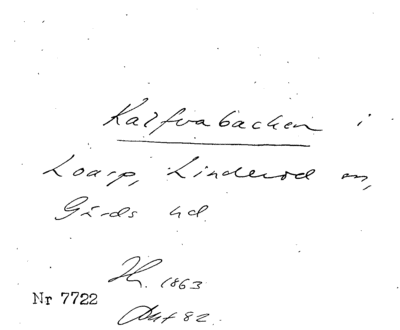 Kalfvabacken i
Loarp, Linderöd sn,
Gärds hd
1863
Nr 7722
82